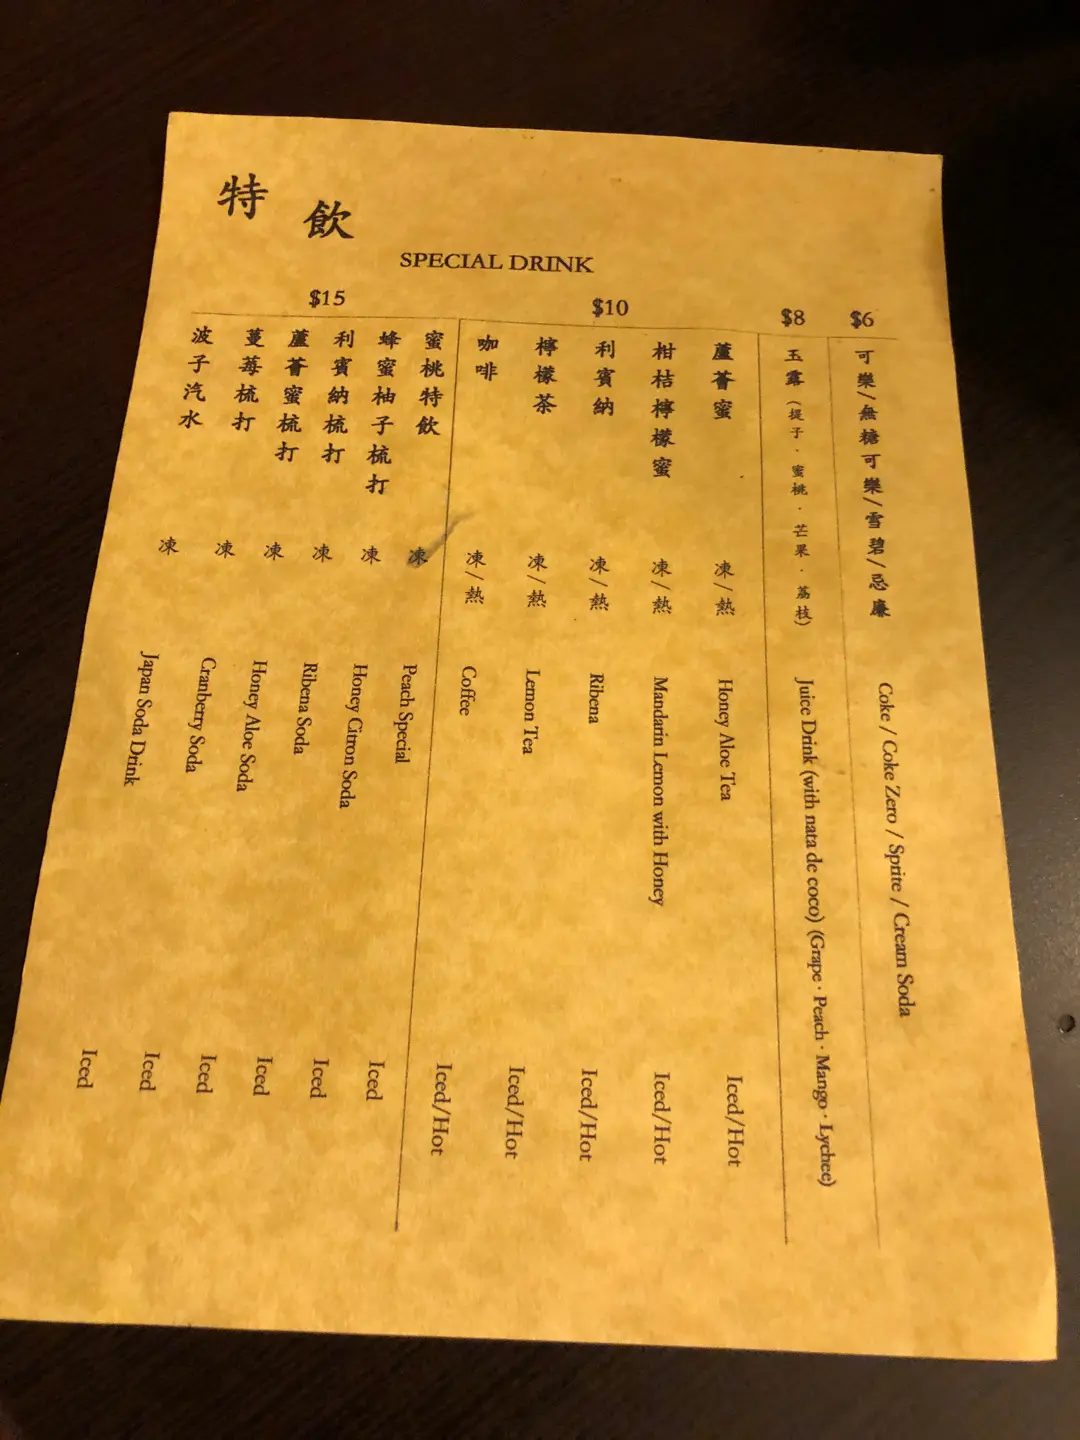 特飲
SPECIAL DRINK
$6
可樂/無糖可樂/雪碧/忌廉
Coke / Coke Zero / Sprite / Cream Soda
$8
玉露(提子．蜜桃．芒果．荔枝)
Juice Drink (with nata de coco) (Grape · Peach · Mango · Lychee)
$10
蘆薈蜜 凍/熱 Honey Aloe Tea Iced/Hot
柑桔檸檬蜜 凍/熱 Mandarin Lemon with Honey Iced/Hot
利賓納 凍/熱 Ribena Iced/Hot
檸檬茶 凍/熱 Lemon Tea Iced/Hot
咖啡 凍/熱 Coffee Iced/Hot
$15
蜜桃特飲 凍 Peach Special Iced
蜂蜜柚子梳打 凍 Honey Citron Soda Iced
利賓納梳打 凍 Ribena Soda Iced
蘆薈蜜梳打 凍 Honey Aloe Soda Iced
蔓莓梳打 凍 Cranberry Soda Iced
波子汽水 凍 Japan Soda Drink Iced